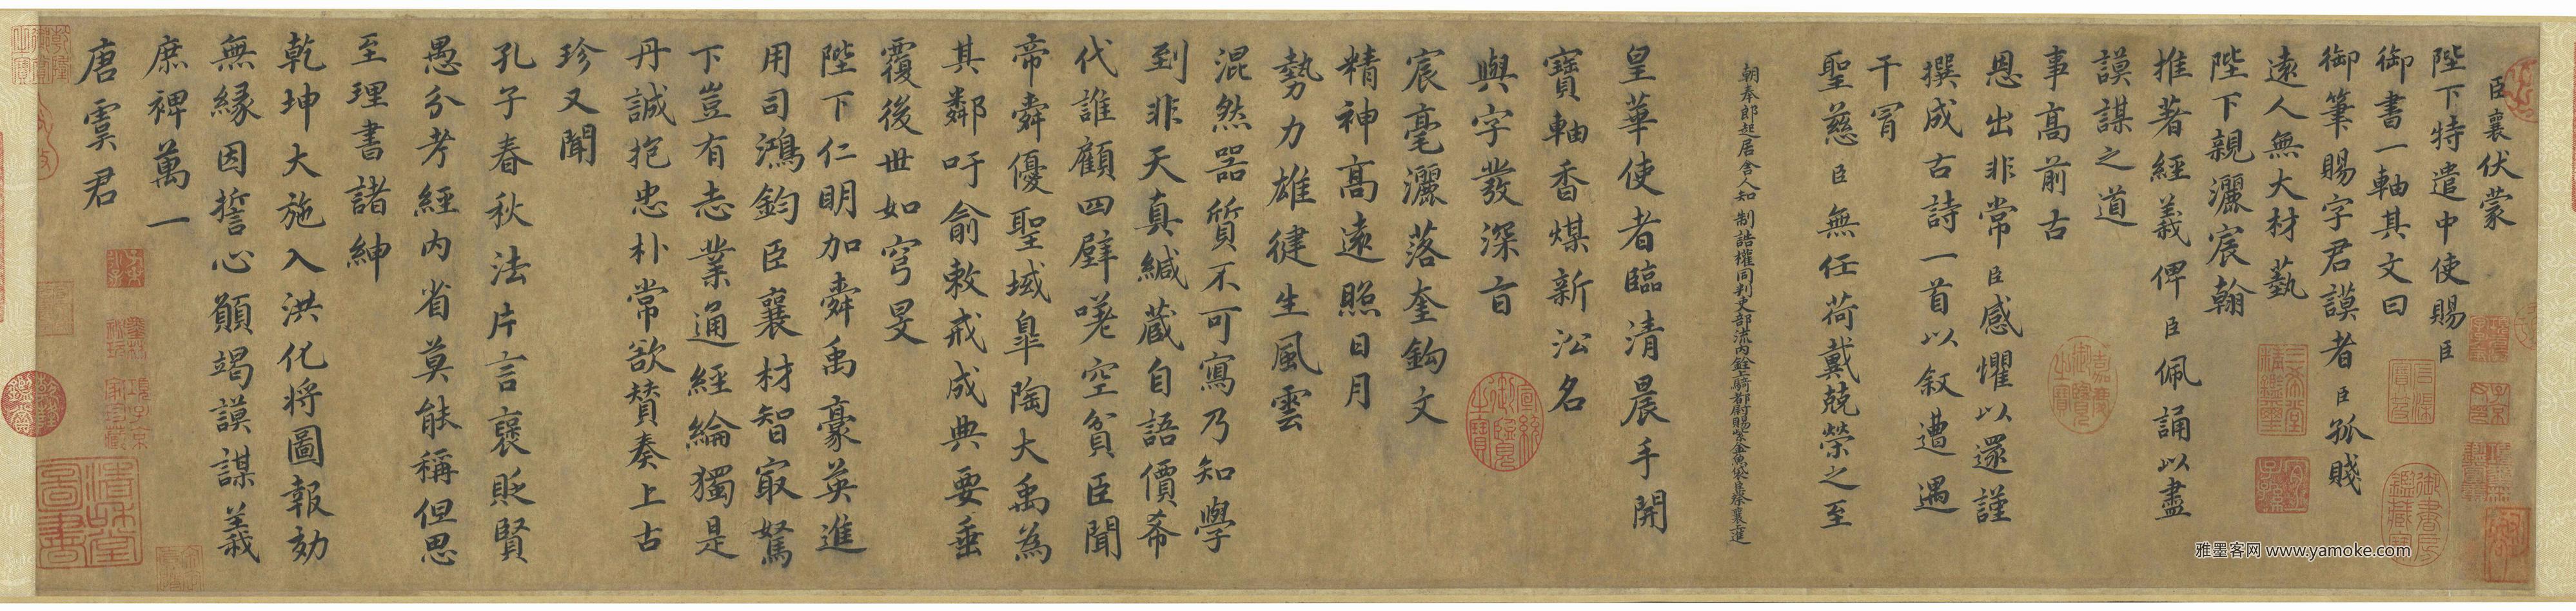 臣襄伏蒙
陛下特遣中使賜臣
御書一軸其文曰
御筆賜字君謨者臣孤賤
遠人無大材藝
陛下親灑宸翰
推著經義俾臣佩誦以盡
謨謀之道
事高前古
恩出非常臣感懼以還謹
撰成古詩一首以叙遭遇
干冒
聖慈臣無任荷戴兢榮之至
朝奉郎起居舍人知制誥權同判吏部流内銓上騎都尉賜紫金魚袋臣蔡襄上進
皇華使者臨清晨手開
寶軸香煤新沿名
與字發深㫖
宸毫灑落奎鈎文
精神高遠照日月
勢力雄健生風雲
混然器質不可寫乃知學
到非天真緘藏自語價希
代誰顧四壁嗟空貧臣聞
帝舜優聖域臯陶大禹為
其鄰吁俞敕戒成典要垂
覆後世如穹旻
陛下仁明加舜禹豪英進
用司鴻鈞臣襄材智最駑
下豈有志業通經綸獨是
丹誠抱忠朴常欲贊奏上古
珍又聞
孔子春秋法片言褒貶賢
愚分考經内省莫能稱但思
至理書諸紳
乾坤大施入洪化將圖報効
無縁因誓心願竭謨謀義
庶裨萬一
唐虞君
雅墨客网 www.yamoke.com